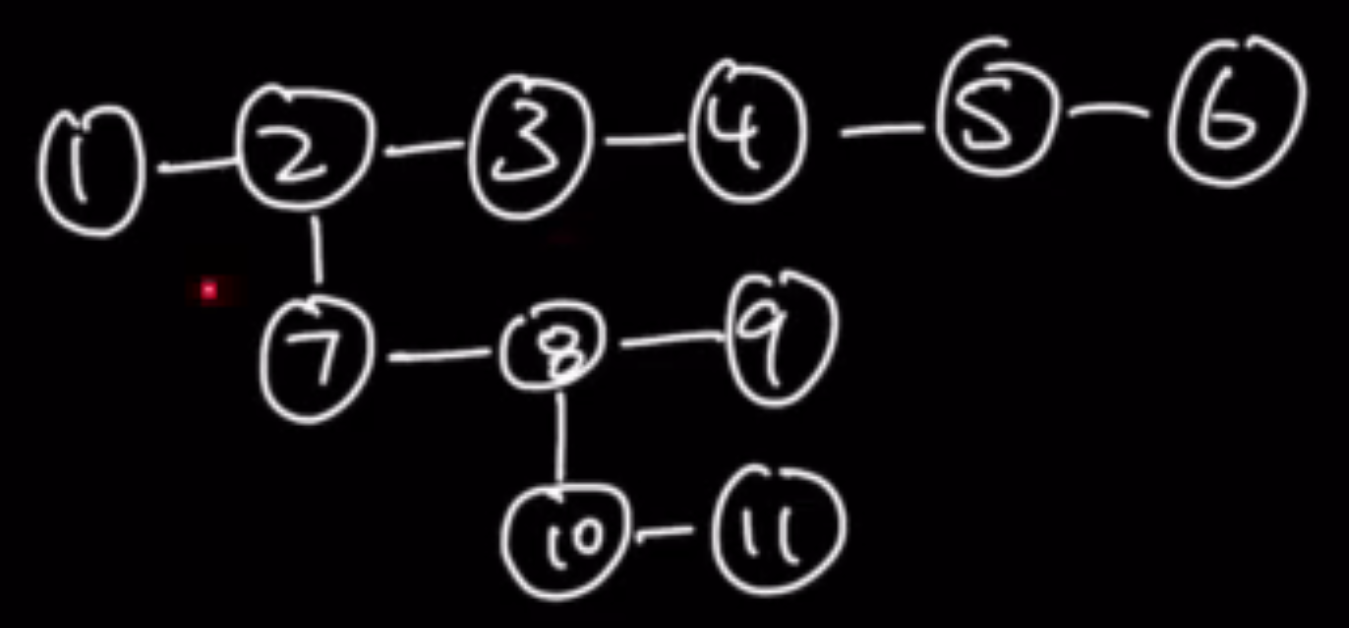 1 2 3 4 5 6
7 8 9
10 11